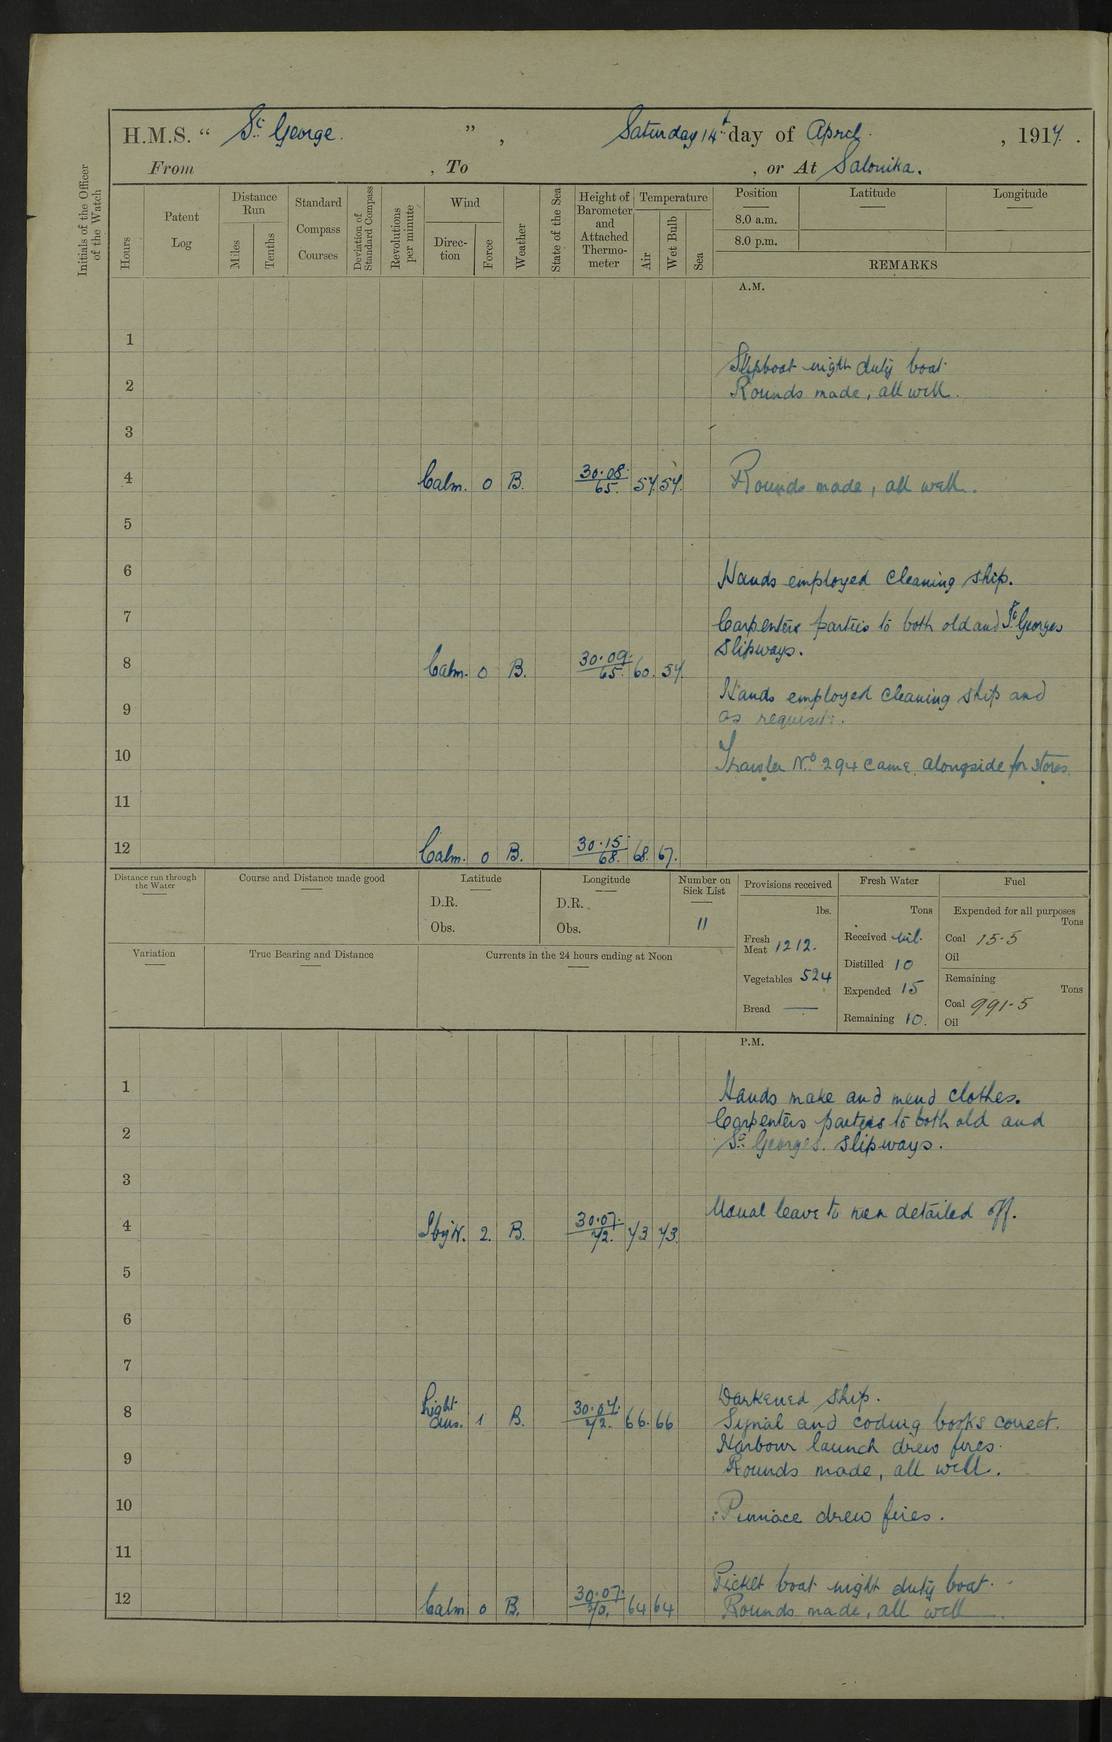 H.M.S. “ St. George. ” , Saturday 14th day of April. , 1917.
From , To , or At Salonika.
Initials of the Officer of the Watch
Hours
Patent Log
Distance Run
Miles
Tenths
Standard Compass Courses
Deviation of Standard Compass
Revolutions per minute
Wind
Direction
Force
Weather
State of the Sea
Height of Barometer and Attached Thermometer
Temperature
Air
Wet Bulb
Sea
Position Latitude Longitude
8.0 a.m.
8.0 p.m.
REMARKS
A.M.
1
Slipboat night duty boat.
2 Rounds made, all well.
3
4 Calm. 0 B. 30.08/65. 57. 57. Rounds made, all well.
5
6 Hands employed cleaning ship.
7 Carpenters parties to both old and St. Georges
slipways.
8 Calm. 0 B. 30.09./65. 60. 57.
Hands employed cleaning ship and
9 as requisite.
10 Trawler No. 294 came alongside for stores.
11
12 Calm. 0 B. 30.15/68. 68. 67.
Distance run through the Water
Course and Distance made good
Latitude
D.R.
Obs.
Longitude
D.R.
Obs.
Number on Sick List
11
Provisions received
lbs.
Fresh Meat 1212.
Vegetables 524
Bread —
Fresh Water
Tons
Received nil.
Distilled 10
Expended 15
Remaining 10.
Fuel
Expended for all purposes
Tons
Coal 15.5
Oil
Remaining
Tons
Coal 991.5
Oil
Variation
True Bearing and Distance
Currents in the 24 hours ending at Noon
P.M.
1 Hands make and mend clothes.
Carpenters parties to both old and
2 St. Georges slipways.
3
4 2. B. 30.07./72. 73 73. Usual leave to men detailed off.
5
6
7
Darkened ship.
8 Light airs. 1 B. 30.07./72. 66. 66 Signal and coding books correct.
Harbour launch drew fires.
9 Rounds made, all well.
10 Pinnace drew fires.
11
Picket boat night duty boat.
12 Calm 0 B. 30.07./70. 64 64 Rounds made, all well